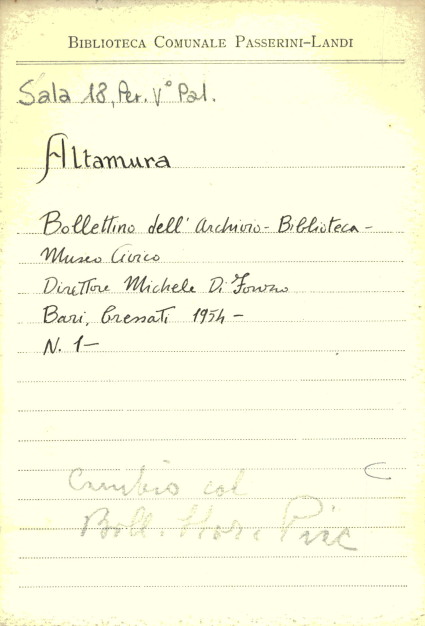 BIBLIOTECA COMUNALE PASSERINI-LANDI
Sala 18, Per. V° Pal.
Altamura
Bollettino dell' Archivio - Biblioteca -
Museo Civico
Direttore Michele Di
Bari, Cressati 1954 -
N. 1 -
Cambio col
Boll. Stor. Piac